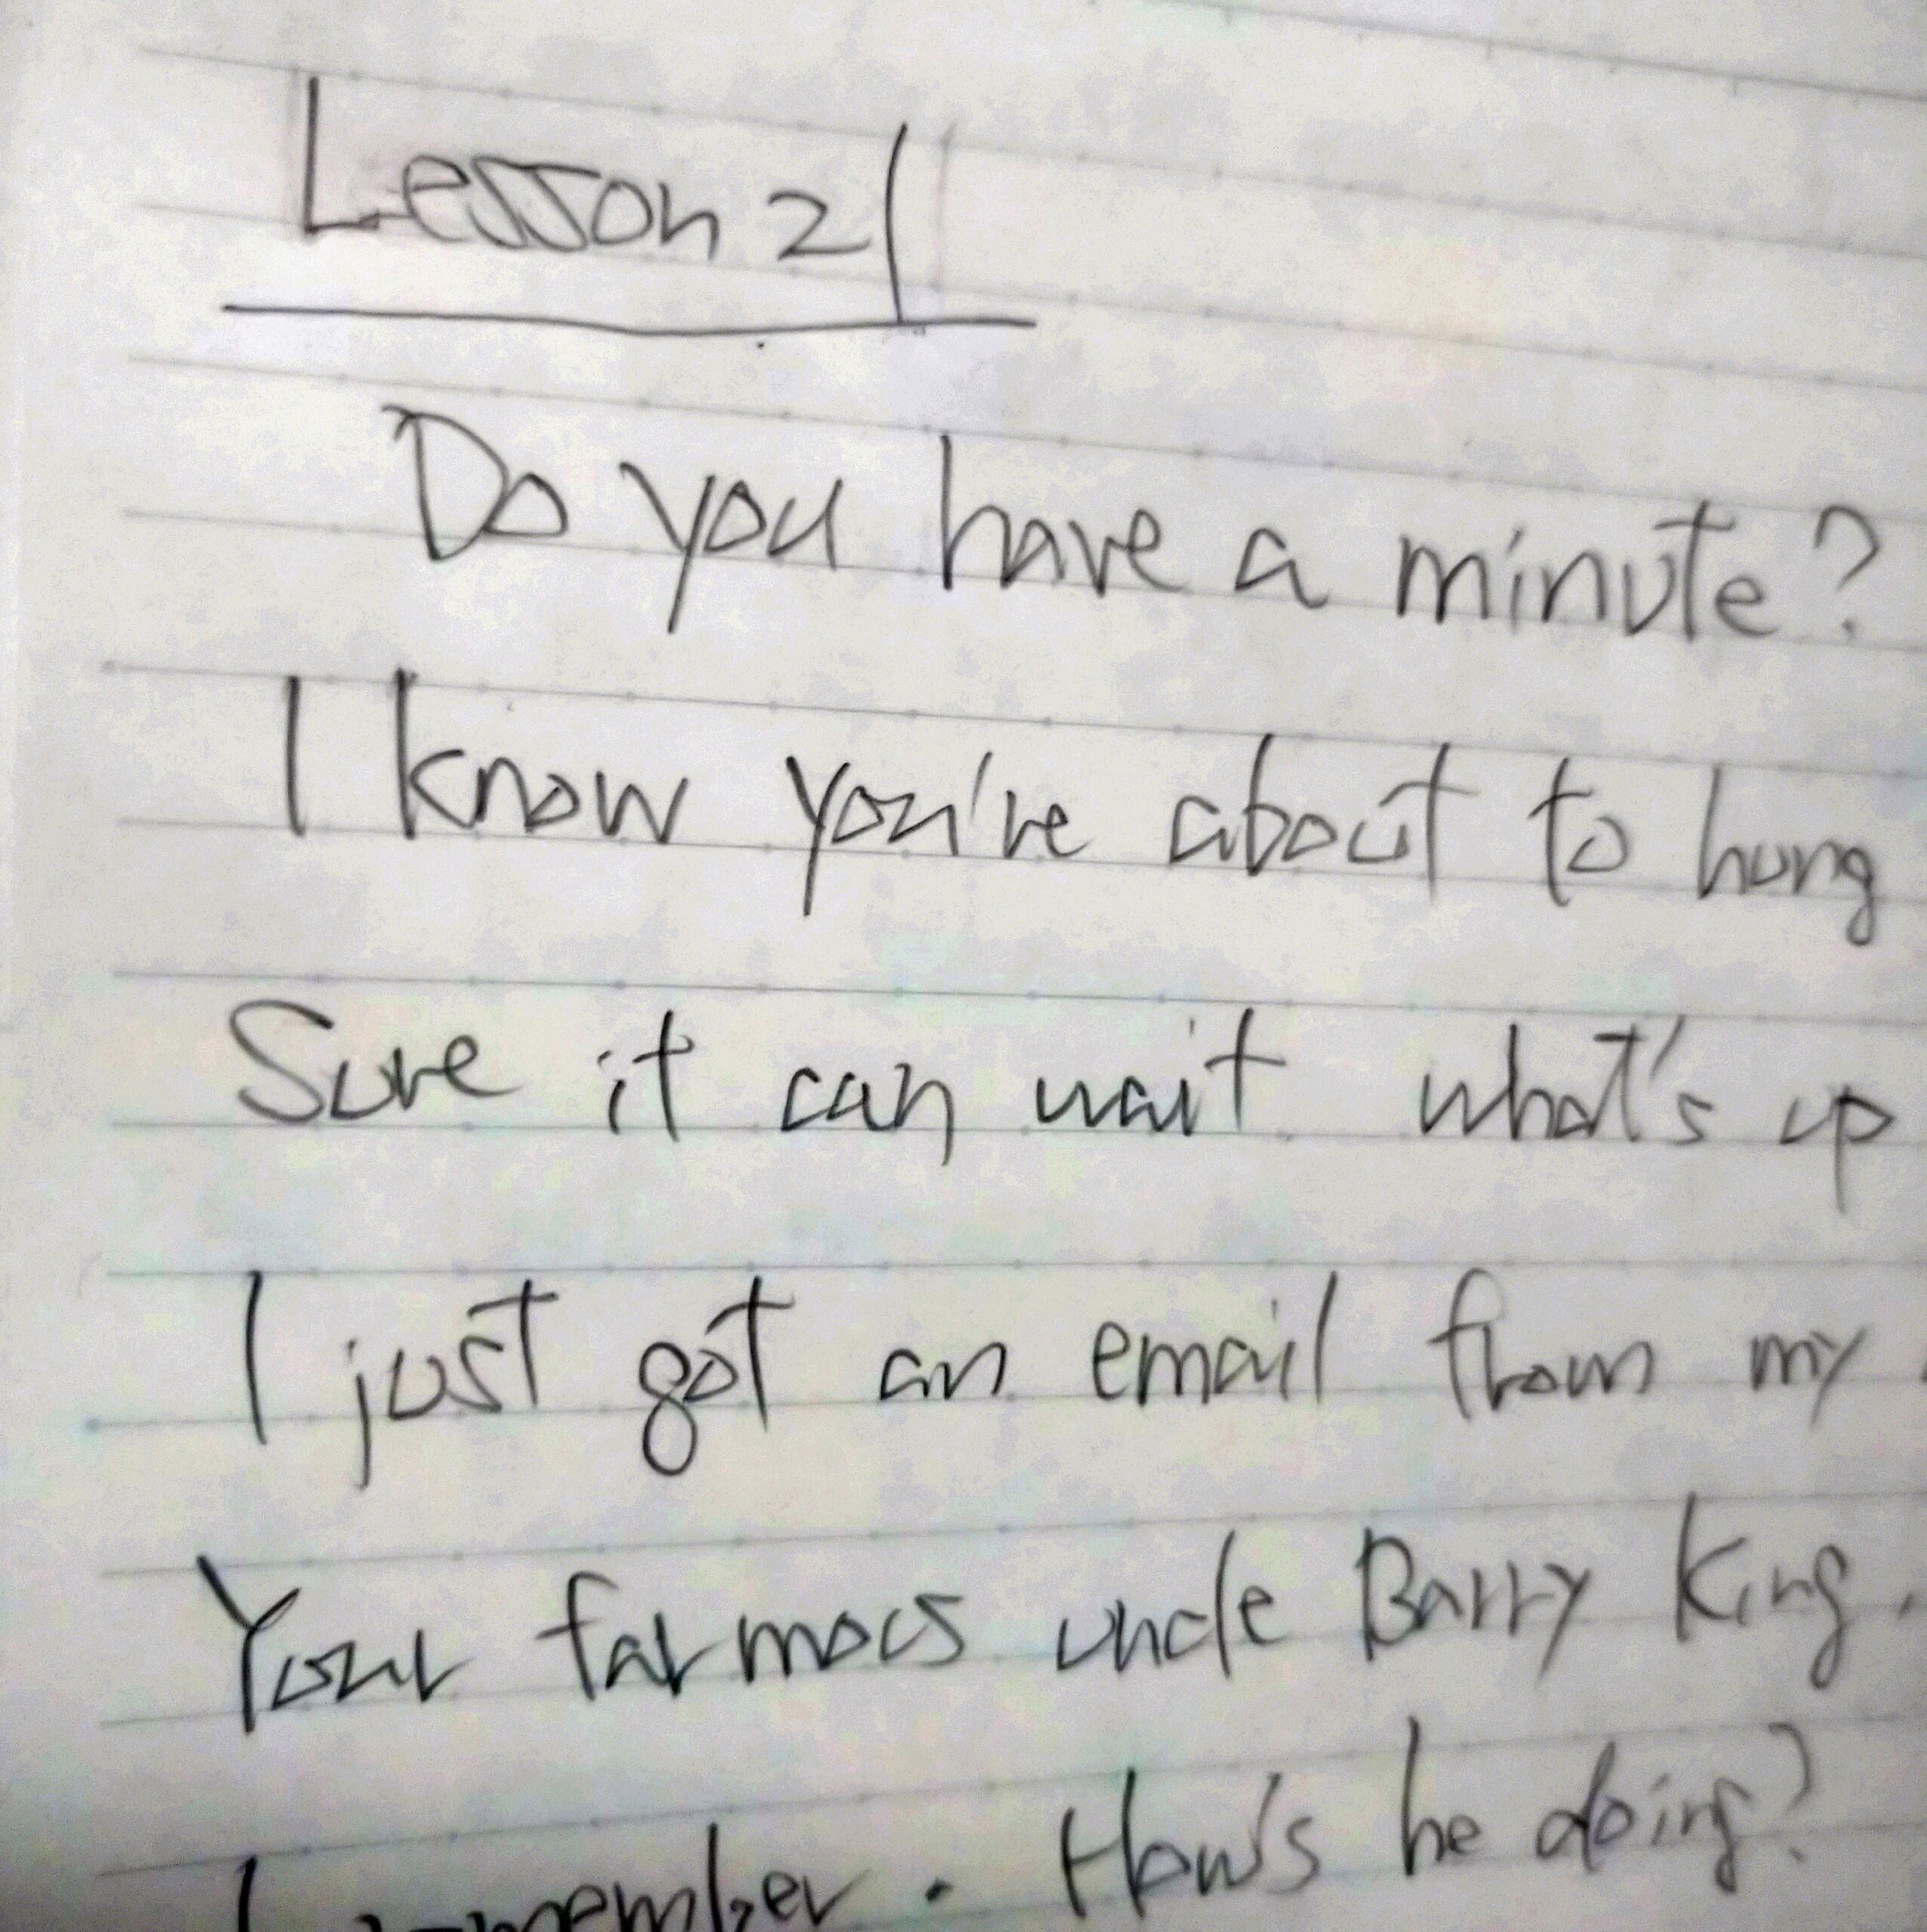 Lesson 21
Do you have a minute?
I know you're about to hung
Sure it can wait what's up
I just got an email from my
Your farmous uncle Barry King.
I remember. How's he doing?